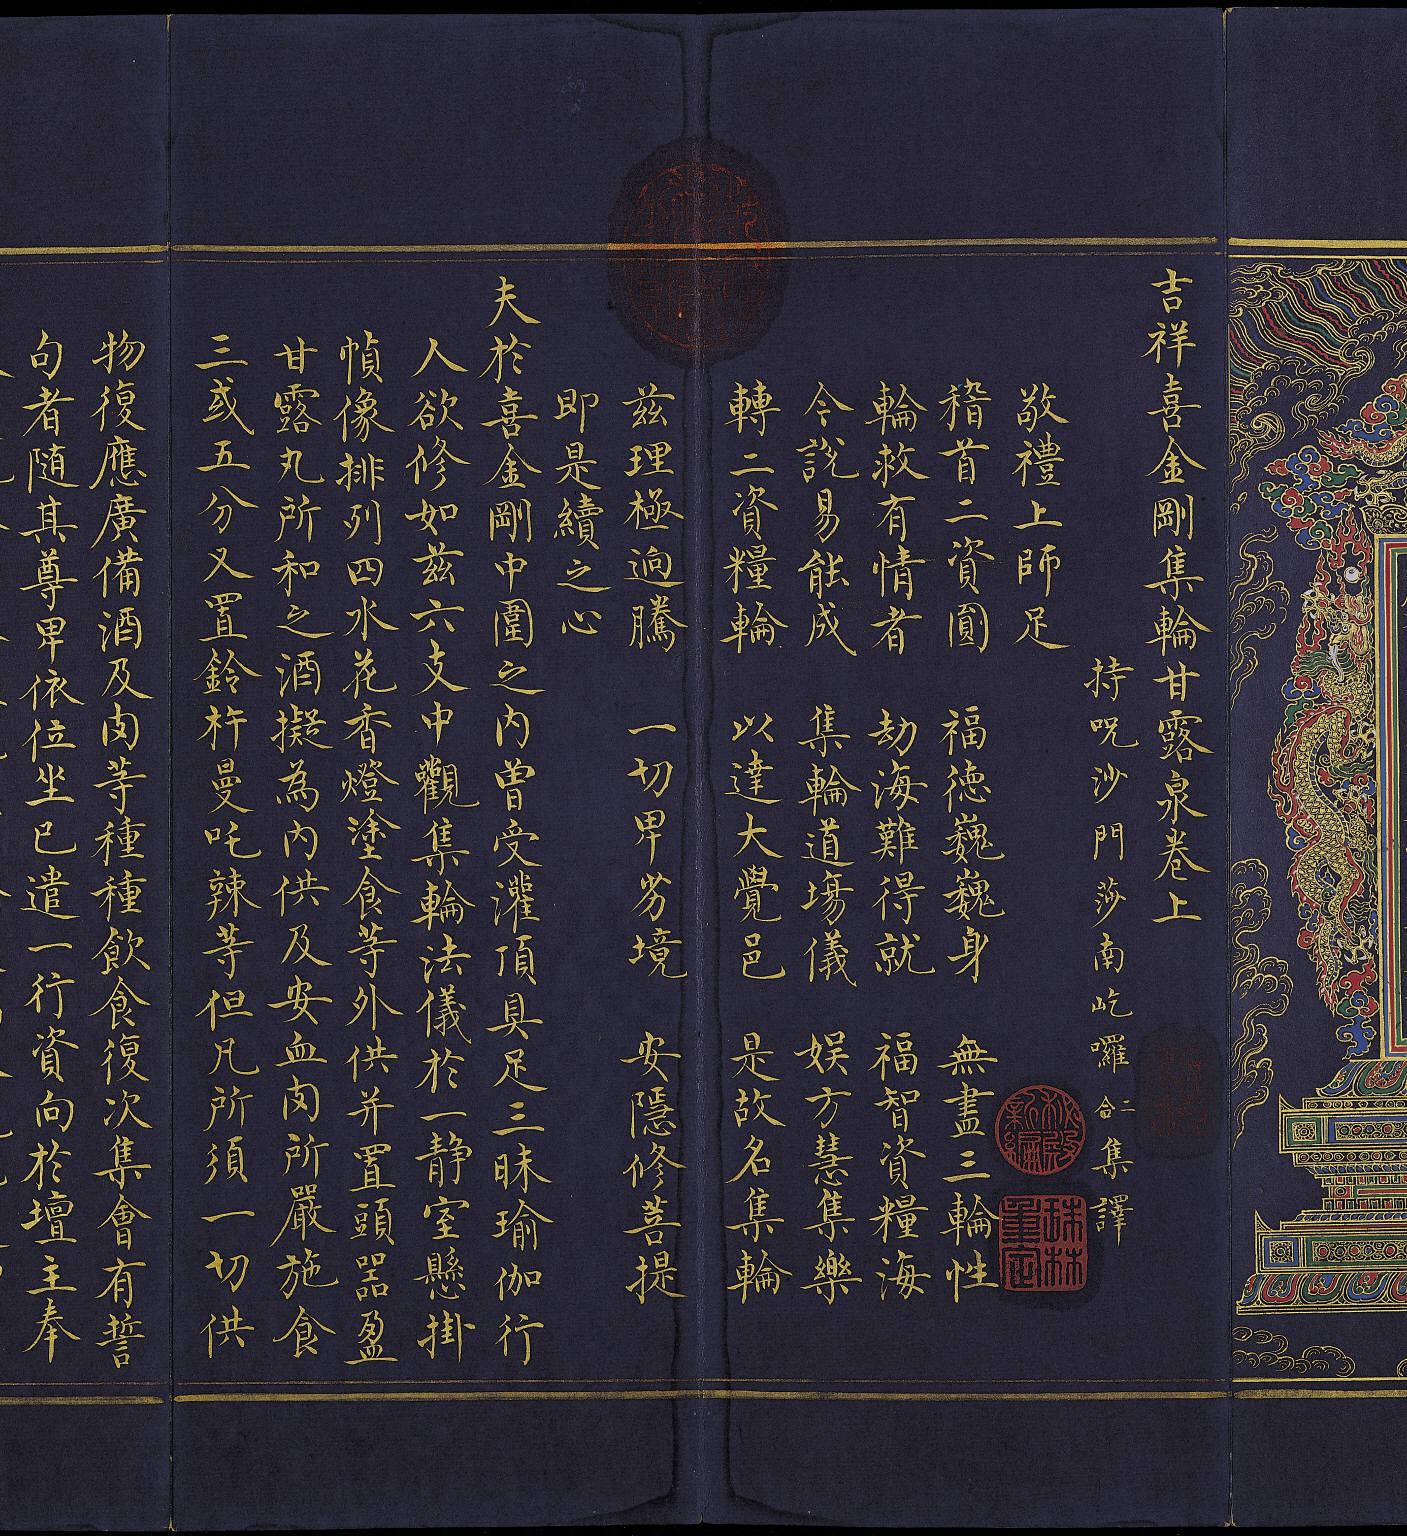 吉祥喜金剛集輪甘露泉卷上
持呪沙門莎南屹囉二合集譯
敬禮上師足
稽首二資圓 福德巍巍身 無盡三輪性
輪救有情者 劫海難得就 福智資糧海
今說易能成 集輪道場儀 娛方慧集樂
轉二資糧輪 以達大覺邑 是故名集輪
茲理極逈騰 一切卑劣境 安隱修菩提
即是續之心
夫於喜金剛中圍之內曾受灌頂具足三昧瑜伽行
人欲修如茲六支中觀集輪法儀於一靜室懸掛
幀像排列四水花香燈塗食等外供并置頭器盈
甘露丸所和之酒擬為內供及安血肉所嚴施食
三或五分又置鈴杵曼吒辣等但凡所須一切供
物復應廣備酒及肉等種種飲食復次集會有誓
句者隨其尊卑依位坐已遣一行資向於壇主奉
秘殿新編
珠林重定